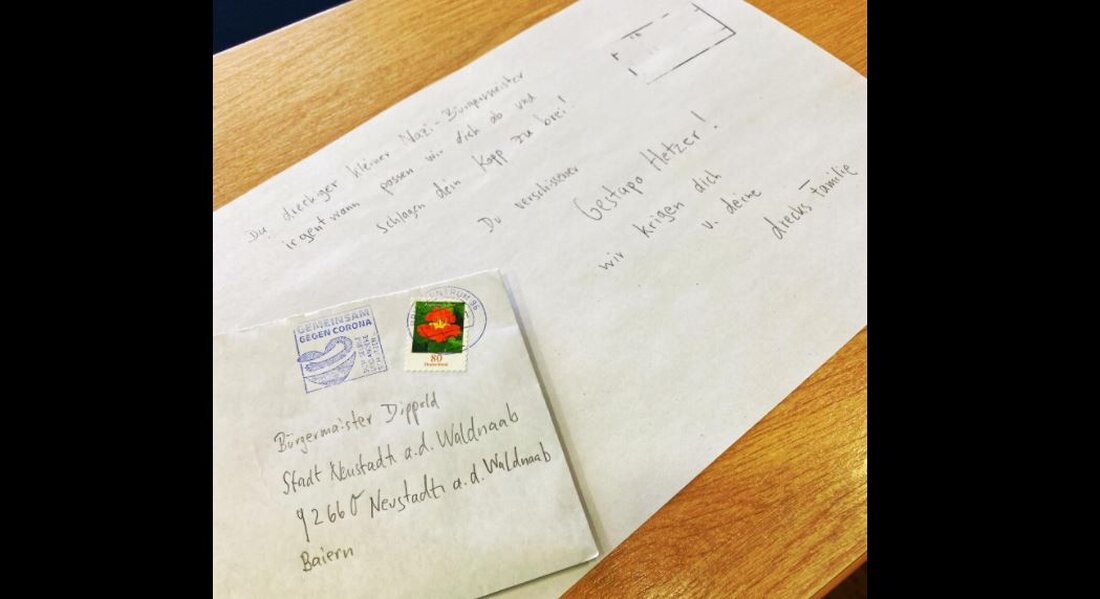 Du dreckiger kleiner Nazi-Bürgermeister
irgentwann passen wir dich ab und
schlagen dein Kopp zu brei!
Du verschissener
Gestapo Hetzer!
wir krigen dich
u. deine
drecks Familie
GEMEINSAM
GEGEN CORONA
ENTRUM 96
80
Deutschland
Bürgermaister Dippold
Stadt Neustadt a.d. Waldnaab
92660 Neustadt a.d. Waldnaab
Baiern